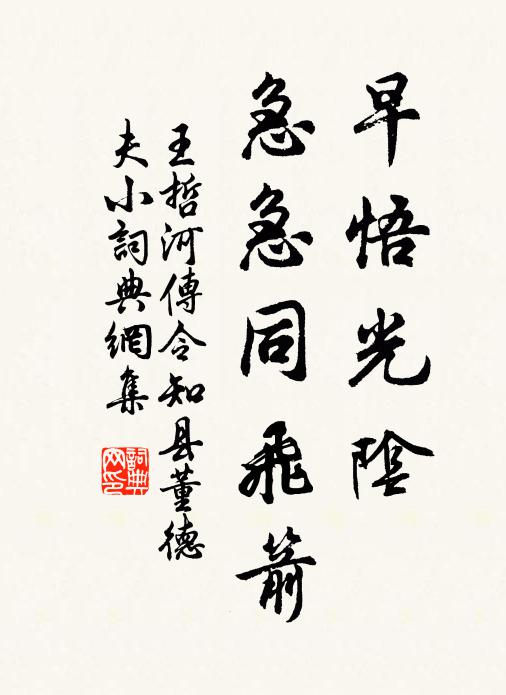 早悟光陰
急急同飛箭
王哲河傳令知县董德
夫小詞典網集
詞典网印